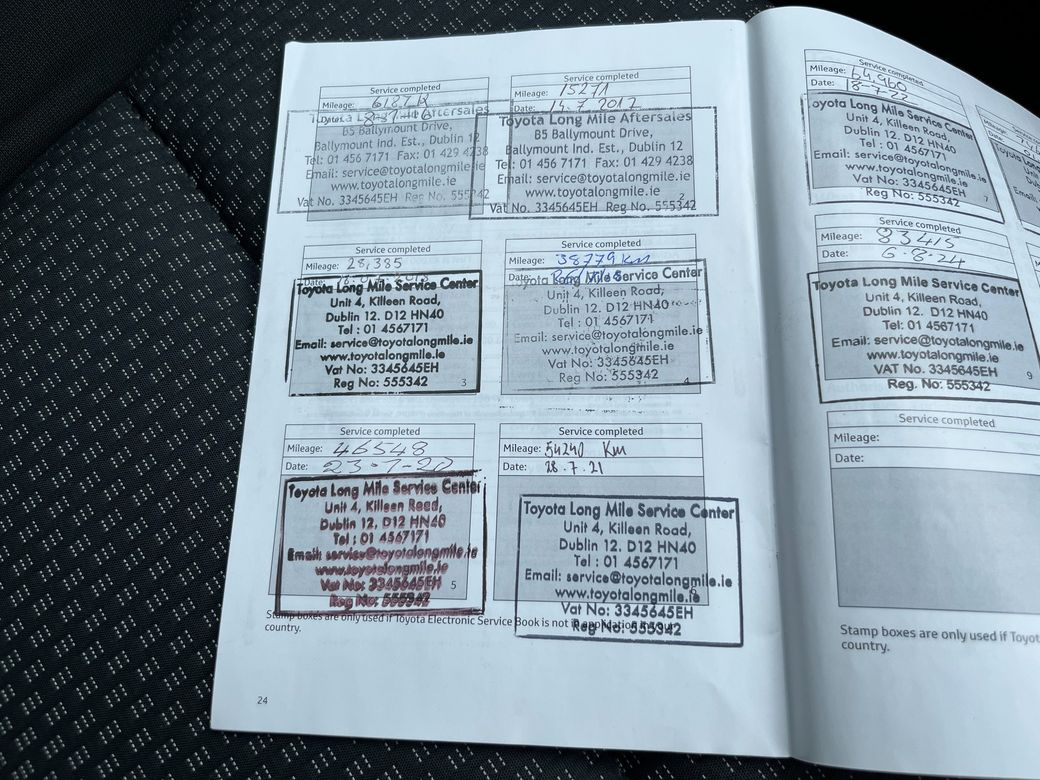 Service completed
Mileage:
Date:
Toyota Long Mile Aftersales
B5 Ballymount Drive,
Ballymount Ind. Est., Dublin 12
Tel: 01 456 7171 Fax: 01 429 4238
Email: service@toyotalongmile.ie
www.toyotalongmile.ie
Vat No. 3345645EH Reg No. 555342
Service completed
Mileage: 15271
Date: 14.7.2017
Toyota Long Mile Aftersales
B5 Ballymount Drive,
Ballymount Ind. Est., Dublin 12
Tel: 01 456 7171 Fax: 01 429 4238
Email: service@toyotalongmile.ie
www.toyotalongmile.ie
2
Vat No. 3345645EH Reg No. 555342
Service completed
Mileage: 28,385
Date:
Toyota Long Mile Service Center
Unit 4, Killeen Road,
Dublin 12. D12 HN40
Tel : 01 4567171
Email: service@toyotalongmile.ie
www.toyotalongmile.ie
Vat No: 3345645EH
Reg No: 555342
3
Service completed
Mileage: 38779 Km
Date:
Toyota Long Mile Service Center
Unit 4, Killeen Road,
Dublin 12. D12 HN40
Tel : 01 4567171
Email: service@toyotalongmile.ie
www.toyotalongmile.ie
Vat No: 3345645EH
Reg No: 555342
4
Service completed
Mileage: 46548
Date: 23-7-20
Toyota Long Mile Service Center
Unit 4, Killeen Road,
Dublin 12, D12 HN40
Tel : 01 4567171
Email: service@toyotalongmile.ie
www.toyotalongmile.ie
Vat No: 3345645EH
Reg No: 555342
5
Service completed
Mileage: 54240 Km
Date: 28.7.21
Toyota Long Mile Service Center
Unit 4, Killeen Road,
Dublin 12. D12 HN40
Tel : 01 4567171
Email: service@toyotalongmile.ie
www.toyotalongmile.ie
Vat No: 3345645EH
Reg No: 555342
Stamp boxes are only used if Toyota Electronic Service Book is not in application in your
country.
24
Service completed
Mileage: 64,960
Date: 18-7-22
Toyota Long Mile Service Center
Unit 4, Killeen Road,
Dublin 12. D12 HN40
Tel : 01 4567171
Email: service@toyotalongmile.ie
www.toyotalongmile.ie
Vat No: 3345645EH
Reg No: 555342
7
Service completed
Mileage: 83415
Date: 6.8.24
Toyota Long Mile Service Center
Unit 4, Killeen Road,
Dublin 12. D12 HN40
Tel: 01 4567171
Email: service@toyotalongmile.ie
www.toyotalongmile.ie
VAT No: 3345645EH
Reg. No: 555342
9
Service completed
Mileage:
Date:
Stamp boxes are only used if Toyot
country.